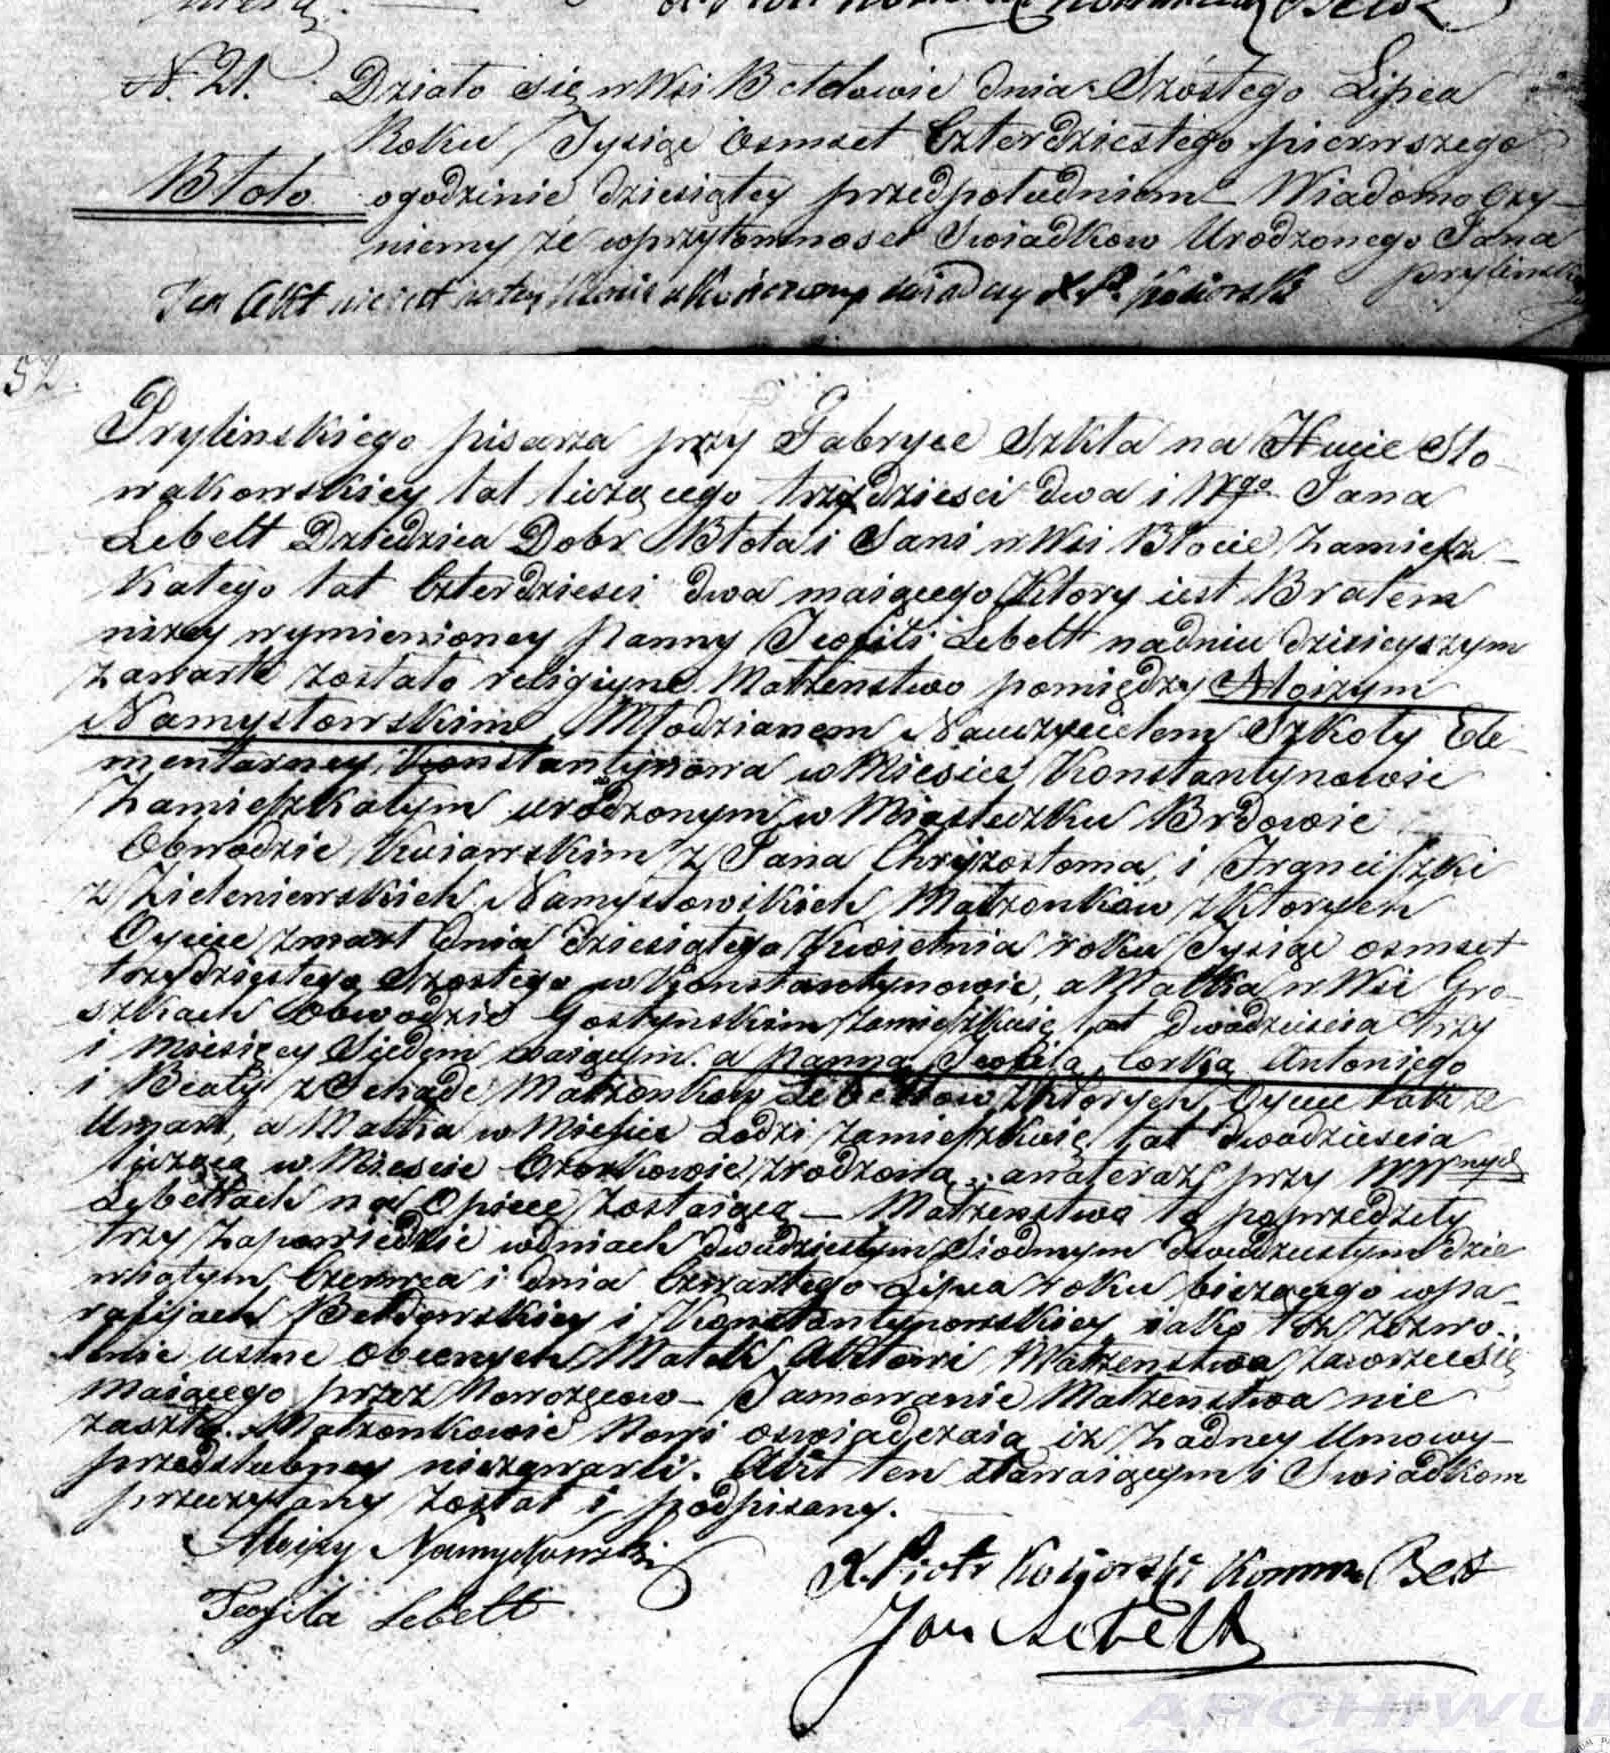 N. 21. Działo się w Wsi Bełdowie dnia Szóstego Lipca
Roku Tysiąc Osmset Czterdziestego pierwszego
Błoto ogodzinie dziesiątey przedpołudniem Wiadomo Czy-
niemy że wprzytomnosci Swiadkow Urodzonego Jana
prylinsk
Ten Akt nie jest na tey stronie ukończony swiadczy X. P. Kosiorski
52.
Prylinskiego pisarza przy Fabryce Szkła na Hucie Sło-
wakowskiey lat liczącego trzydziesci dwa i Wgo Jana
Lebelt Dziedzica Dobr Błota i Sani w Wsi Błocie zamiesz-
kałego lat Czterdziesci dwa maiącego Ktory iest Bratem
niżey wymienioney Panny Teofili Lebelt nadniu dzisieyszym
zawarte zostało religiyne Małżenstwo pomiędzy Aloizym
Namysłowskim Młodzianem Nauczycielem Szkoły Ele-
mentarney Konstantynowa w Miescie Konstantynowie
zamieszkałym urodzonym w Miasteczku Brdowie
Obwodzie Kuiawskim z Jana Chryzostoma i Franciszki
z Zieleniewskich Namysłowskich Małżonkow z Ktorych
Oyciec zmarł dnia dziesiątego Kwietnia roku Tysiąc osmset
trzydziestego Szostego w Konstantynowie, a Matka w Wsi Gro-
szkach Obwodzie Gostynskim zamieszkuie lat dwadziescia trzy
i Miesięcy Siedem maiącym. a Panną Teofilą Corką Antoniego
i Beaty z Schade Małżonkow Lebeltow z Ktorych Oyciec także
Umarł, a Matka w Miescie Łodzi zamieszkuie lat dwadziescia
liczącą w Miescie Ozorkowie zrodzoną, anateraz przy WWnych
Lebeltach na Opiece zostaiącą — Małżenstwo to poprzedziły
trzy zapowiedzie wdniach dwudziestym Siodmym dwudziestym dzie-
wiątym Czerwca i dnia Czwartego Lipca roku bieżącego wpa-
rafijach Bełdowskiey i Konstantynowskiey iako też zezwo-
lenie ustne obecnych Matek Aktowi Małżenstwa zawrzec się
maiącego przez Nowożencow — Tamowanie Małżenstwa nie
zaszło. Małżonkowie Nowi oswiadczaią iż żadney Umowy
przedslubney niezawarli. Akt ten stawaiącym i Swiadkom
przeczytany został i podpisany.
Aloizy Namysłowski
X. Piotr Kosiorski Komm. Beł.
Teofila Lebelt
Jan Lebelt
ARCHIWU